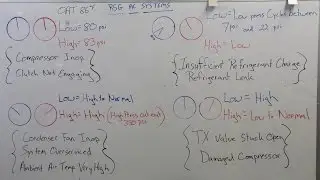 CAT 86Y
RSG AC SYSTEMS
Low = 80 psi
High = 83 psi
Compressor Inop
Clutch Not Engaging
Low = Low press Cycle between
7 psi and 22 psi
High = Low
Insufficient Refrigerant Charge
Refrigerant Leak
Low = High to Normal
High = High
Condenser Fan Inop
System Overserviced
Ambient Air Temp Very High
Low = High
High = Low to Normal
TX Valve Stuck Open
Damaged Compressor